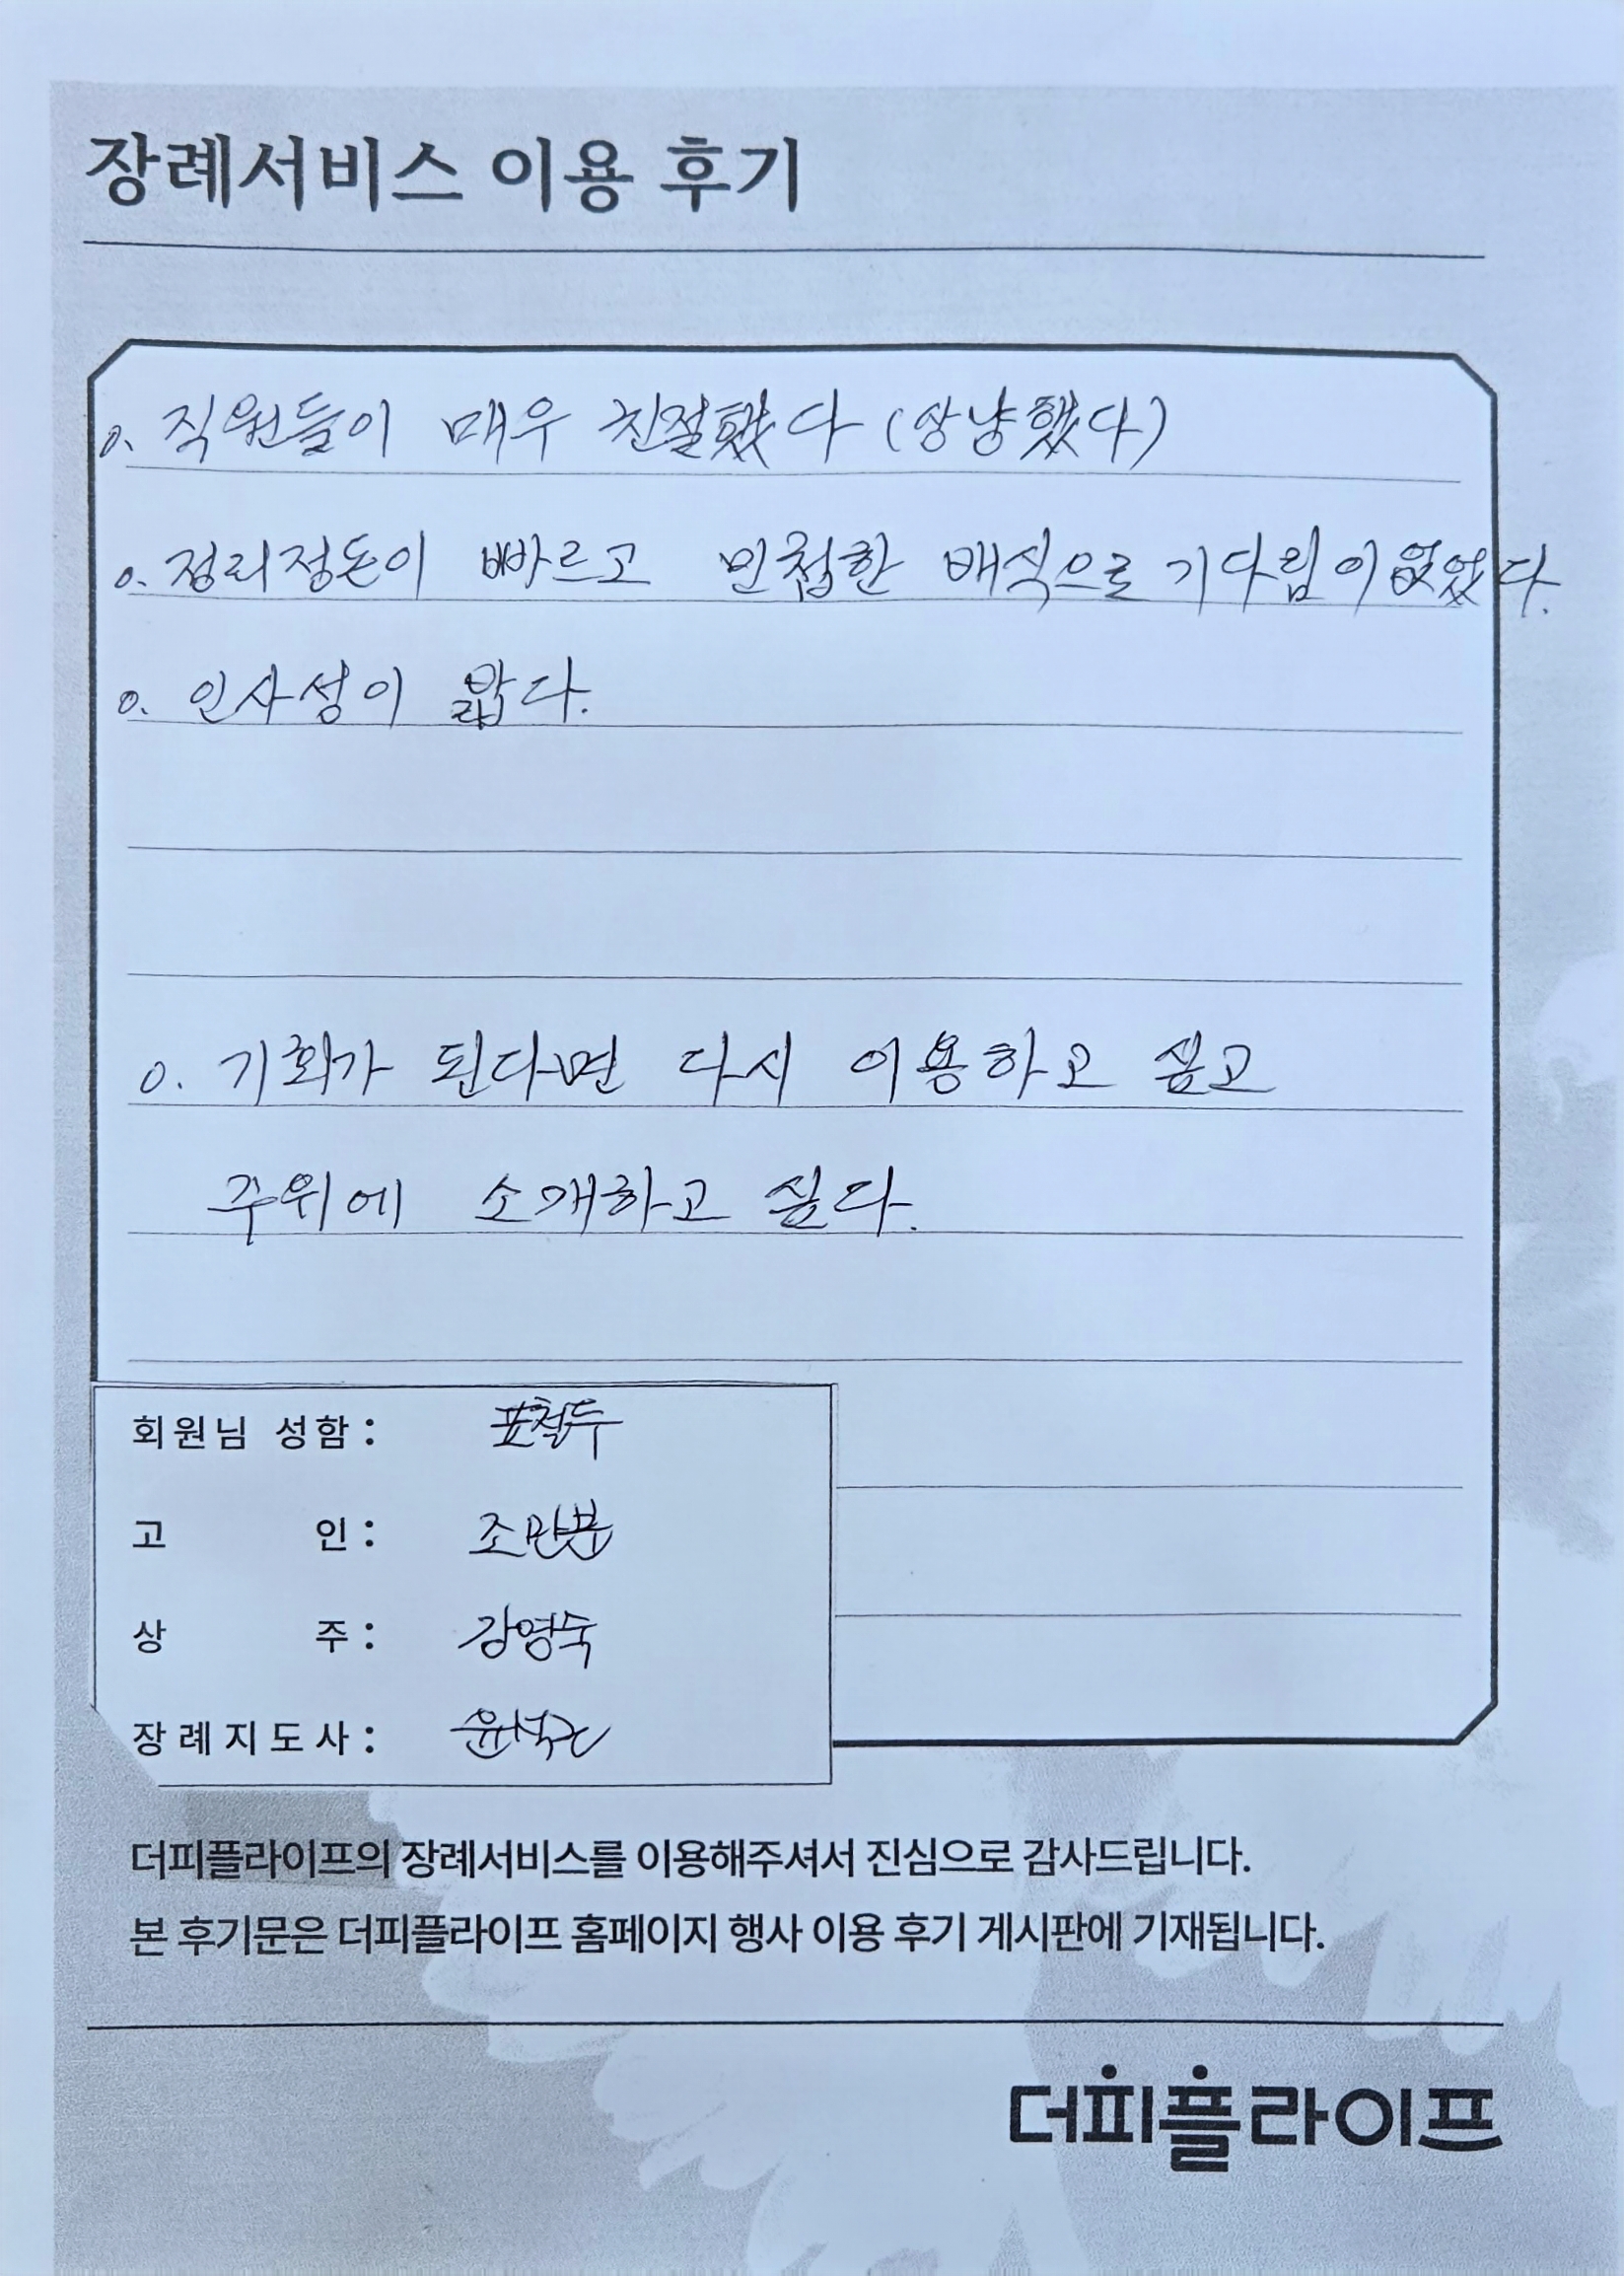 장례서비스 이용 후기
o. 직원들이 매우 친절했다 (상냥했다)
o. 정리정돈이 빠르고 민첩한 배식으로 기다림이 없었다.
o. 인사성이 밝다.
o. 기회가 된다면 다시 이용하고 싶고
주위에 소개하고 싶다.
회원님 성함 : 표철두
고 인 : 조만분
상 주 : 강영숙
장례지도사 :
더피플라이프의 장례서비스를 이용해주셔서 진심으로 감사드립니다.
본 후기문은 더피플라이프 홈페이지 행사 이용 후기 게시판에 기재됩니다.
더피플라이프